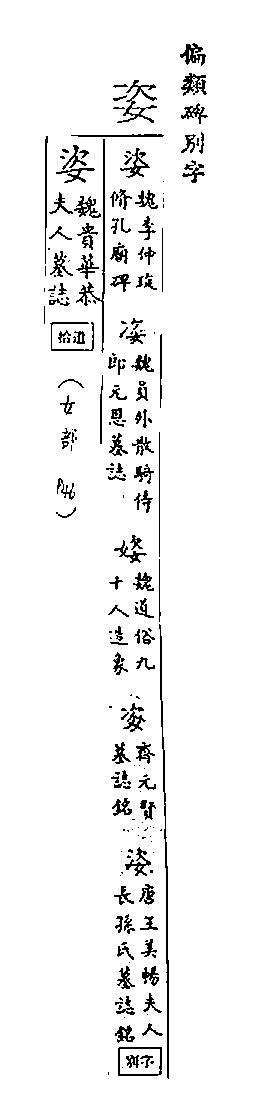 偏類碑別字
姿
姿 魏李仲琁
脩孔廟碑
姿 魏員外散騎侍
郎元恩墓誌
魏道俗九
十人造象
姿 齊元賢
墓誌銘
姿 唐王美暢夫人
長孫氏墓誌銘
別字
姿
魏貴華恭
夫人墓誌
拾遺
（女部 P46）